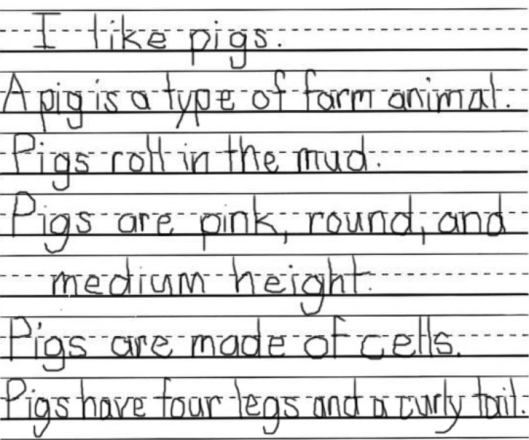 I like pigs.
A pig is a type of farm animal.
Pigs roll in the mud.
Pigs are pink, round, and
medium height.
Pigs are made of cells.
Pigs have four legs and a curly tail.